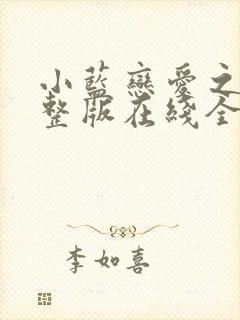 小藍戀愛之
整版在綫全
李如喜